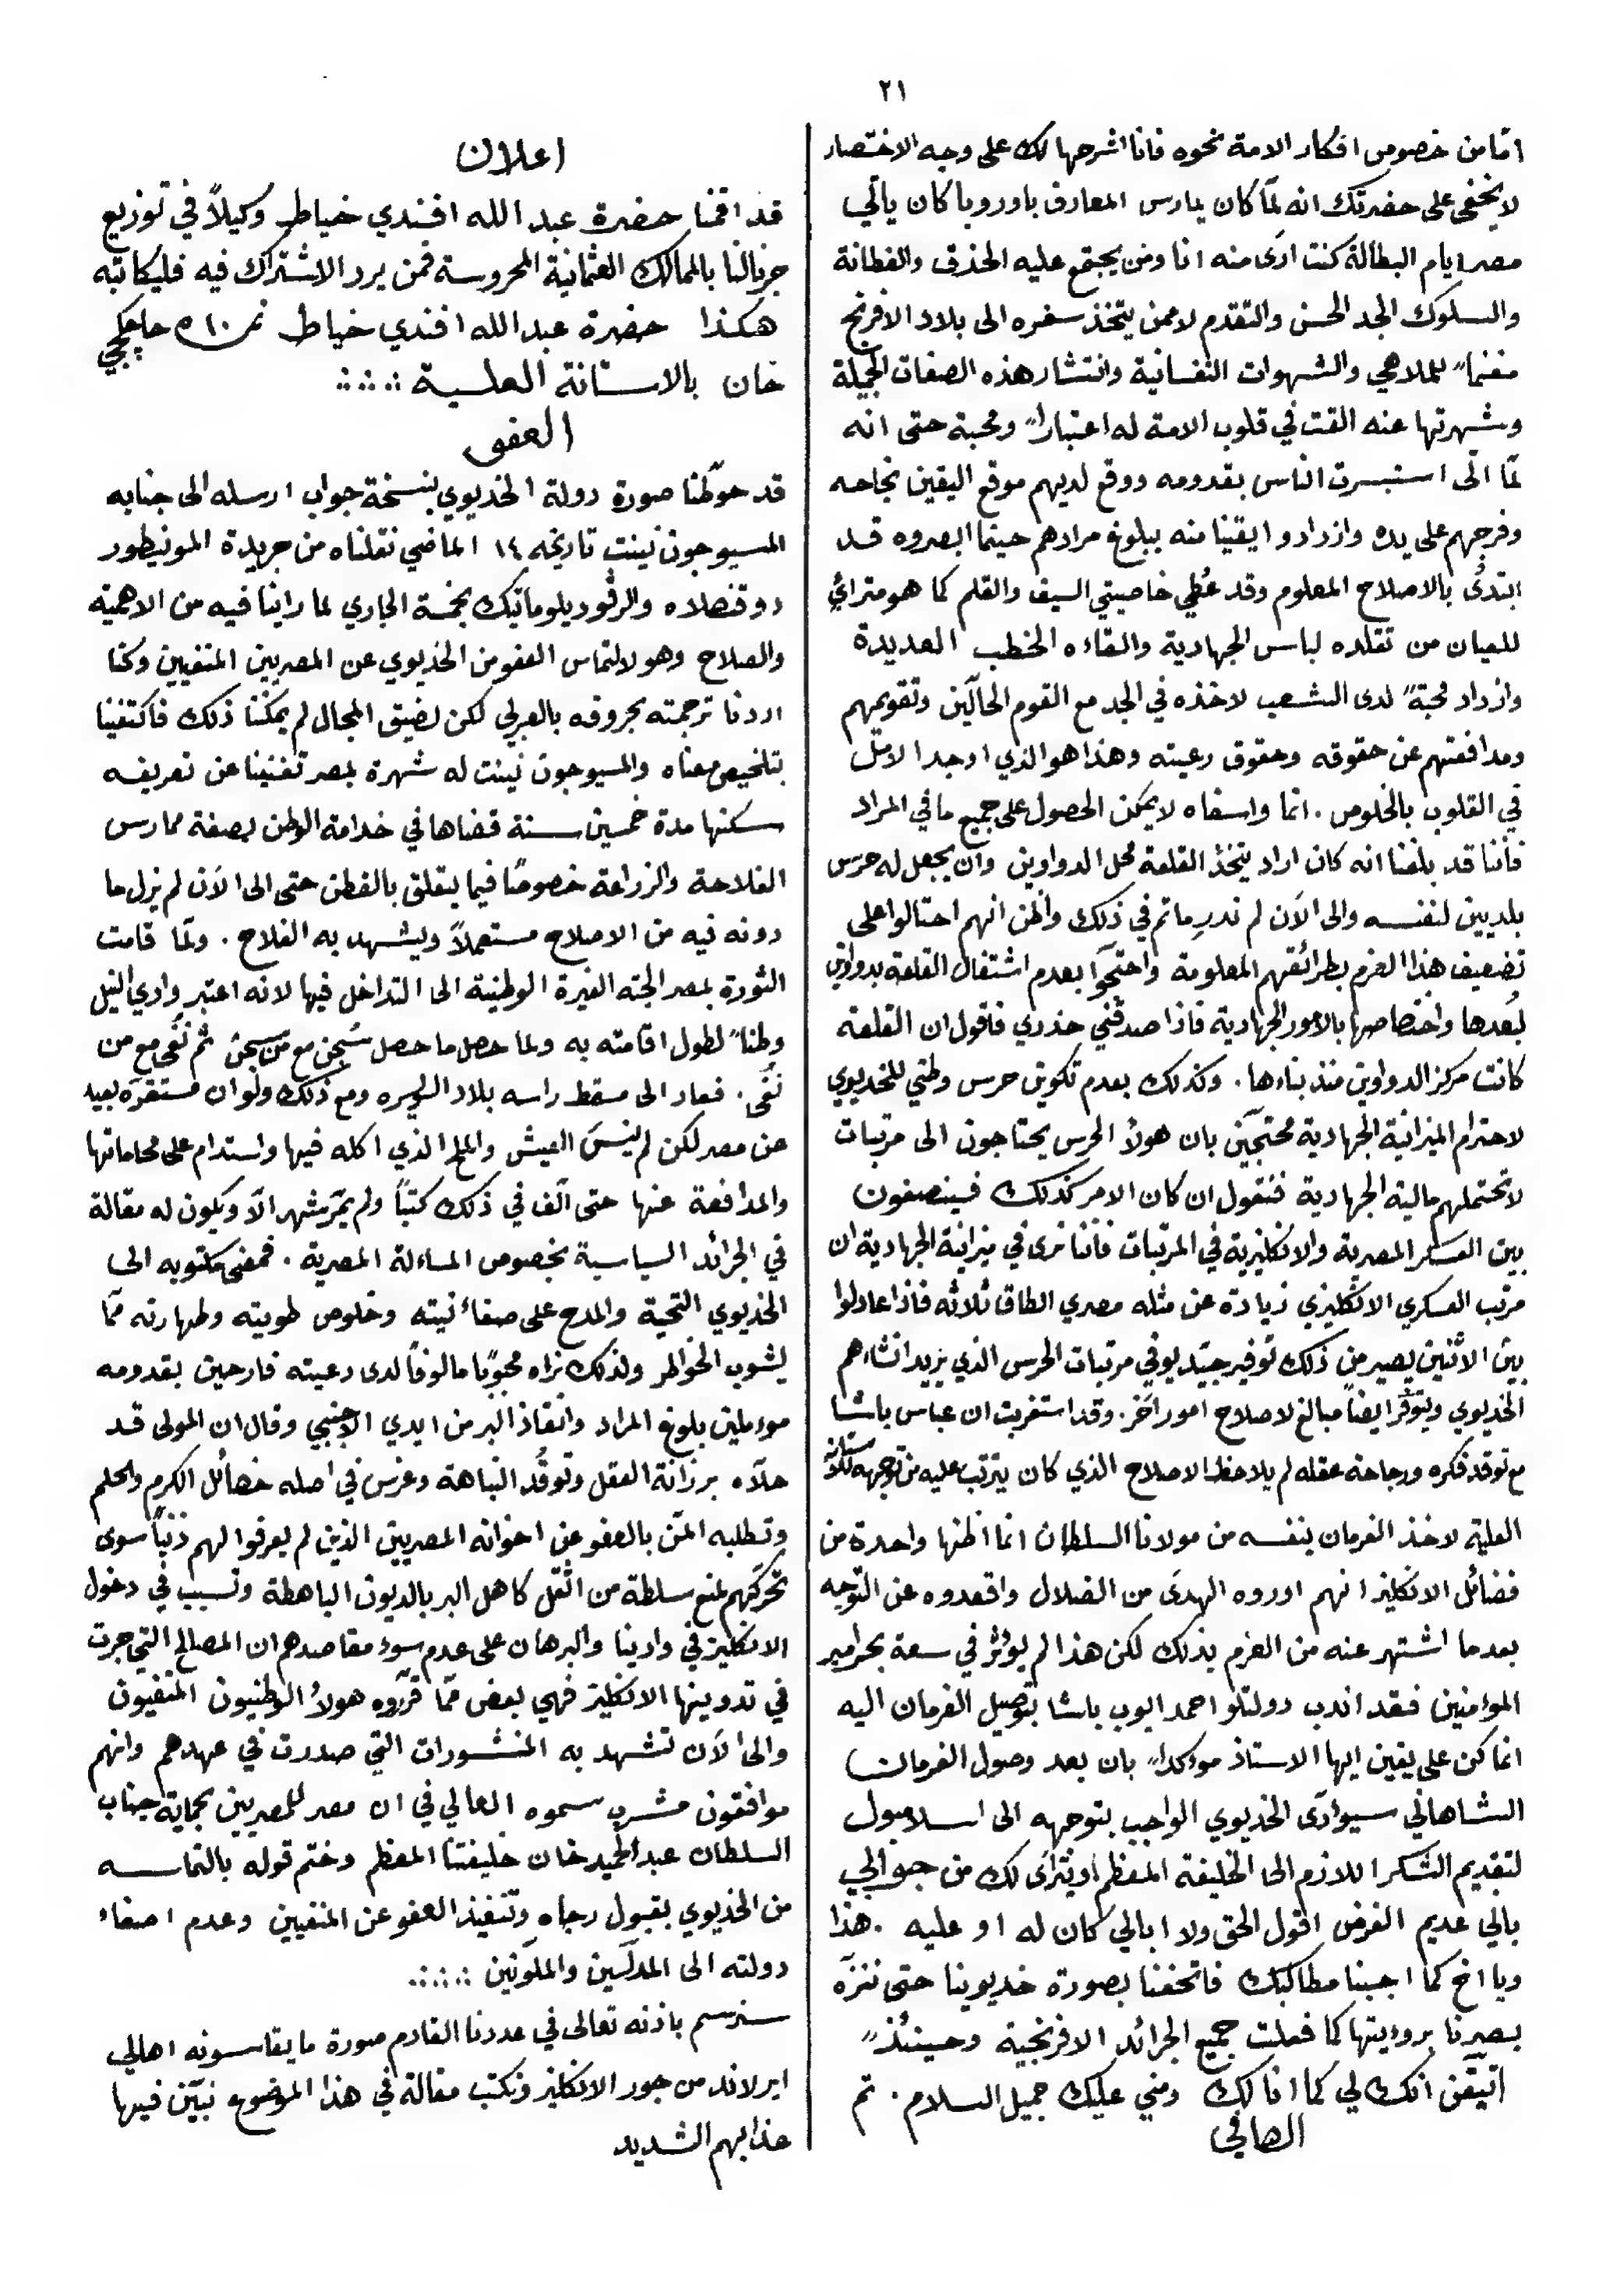 ٢١
امّا من خصوص افكار الامة نحوه فانا اشرحها لك على وجه الاختصار
لا يخفى على حضرتك انه لمّا كان يمارس المعارف باوروبا كان يأتي
مصر ايام البطالة كنت ارى منه انا ومن يجتمع عليه الحذق والفطانة
والسلوك الجد الحسن والتقدم لا ممن يتخذ سفره الى بلاد الافرنج
مغنماً للملاهي والشهوات النفسانية وانتشار هذه الصفات الجميلة
وشهرتها عنه القت في قلوب الامة له اعتباراً ومحبة حتى انه
لمّا اتى استبسرت الناس بقدومه ووقع لديهم موقع اليقين نجاحه
وفرجهم على يده وازدادوا يقينا منه ببلوغ مرادهم حينما ابصروه قد
ابتدئ بالاصلاح المعلوم وقد عُطي خاصيتي السيف والقلم كما هو مترائي
للعيان من تقلده لباس الجهادية والقاءه الخطب العديدة
وازداد محبةً لدى الشعب لاخذه في الجد مع القوم الحالّين وتقويمهم
ومدافعتهم عن حقوقه وحقوق رعيته وهذا هو الذي اوجد الامل
في القلوب بالخلوص . انما واسفاه لا يمكن الحصول على جميع ما في المراد
فاننا قد بلغنا انه كان اراد يتخذ القلعة محل الدواوين وان يجعل له حرس
بلديين لنفسه والى الآن لم ندرِ ما تم في ذلك واظن انهم احتالوا على
تضعيف هذا العزم بطرائقهم المعلومة واحتجّوا بعدم اشتغال القلعة بدواوين
لبُعدها واختصاصها بالامور الجهادية فاذا صدقني حذري فاقول ان القلعة
كانت مركز الدواوين منذ بناءها . وكذلك بعدم تكوين حرس وطني للخديوي
لاحترام الميزانية الجهادية محتجّين بان هولاء الحرس يحتاجون الى مرتبات
لا تحتملهم مالية الجهادية فنقول ان كان الامر كذلك فينصفون
بين العسكر المصرية والانكليزية في المرتبات فاننا نرى في ميزانية الجهادية ان
مرتب العسكري الانكليزي زيادة عن مثله مصري الطاق ثلاثه فاذا عادلوا
بين الاثنين يصير من ذلك توفير جيّد يوفي مرتبات الحرس الذي يريد انشاءهم
الخديوي ويتوفّر ايضاً مبالغ لاصلاح امور اخر . وقد استغربت ان عباس باشا
مع توقد فكره ورجاحة عقله لم يلاحظ الاصلاح الذي كان يترتب عليه من توجهه للآستانة
العلية لاخذ الفرمان بنفسه من مولانا السلطان انما اظنها واحدة من
فضائل الانكليز انهم اوروه الهدى من الضلال واقعدوه عن التوجه
بعدما اشتهر عنه من العزم بذلك لكن هذا لم يؤثر في سعة بحر امير
المؤمنين فقد اندب دولتلو احمد ايوب باشا بتوصيل الفرمان اليه
انما كن على يقين ايها الاستاذ مؤكداً بان بعد وصول الفرمان
الشاهاني سيوادّى الخديوي الواجب بتوجهه الى اسلامبول
لتقديم الشكر اللازم الى الخليفة المعظم او يتراى لك من جوابي
بالي عديم الغرض اقول الحق ولا ابالي كان له او عليه . هذا
ويا اخ كما اجبنا مطالبك فاتحفنا بصورة خديوينا حتى ننزّه
بصرنا برويتها كما فعلت جميع الجرائد الافرنجية وحينئذ
اتيقّن انك لي كما انا لك ومني عليك جميل السلام . تم
الصافي
اعلان
قد اقمنا حضرة عبد الله افندي خياط وكيلاً في توزيع
جرنالنا بالممالك العثمانية المحروسة فمن يرد الاشتراك فيه فليكاتبه
هكذا حضرة عبد الله افندي خياط نمره ١٠
خان بالاستانة العلية
العفو
قد حوّلنا صورة دولة الخديوي بنسخة جواب ارسله الى جنابه
المسيو جون نينت تاريخه ١٤ الماضي نقلناه من جريدة المونيطور
دو قنصلاه والرڤو ديلوماتيك بخمسة الجاري لما راينا فيه من الاهمية
والصلاح وهو لالتماس العفو من الخديوي عن المصريين المنفيين وكنا
اردنا ترجمته بحروفه بالعربي لكن لضيق المجال لم يمكننا ذلك فاكتفينا
بتلخيص معناه والمسيو جون نينت له شهرة بمصر تغنينا عن تعريفه
سكنها مدة خمسين سنة قضاها في خدامة الوطن بصفة ممارس
الفلاحة والزراعة خصوصًا فيما يتعلق بالقطن حتى الى الآن لم يزل ما
دونه فيه من الاصلاح مستعملاً ويشهد به الفلاح . ولمّا قامت
الثورة بمصر الجته الغيرة الوطنية الى التداخل فيها لانه اعتبر وادي النيل
وطناً لطول اقامته به ولما حصل ما حصل سُجن مع من سجن ثم نُفى مع من
نُفى . فعاد الى مسقط راسه بلاد السويسره ومع ذلك ولو ان مستقرّه بعيد
عن مصر لكن لم ينسَ العيش والملح الذي اكله فيها واستدام على محاماتها
والمدافعة عنها حتى الّف في ذلك كتبًا ولم يمرّ شهر الّا ويكون له مقالة
في الجرائد السياسية بخصوص المساءلة المصرية . فمعنى مكتوبه الى
الخديوي التحية والمدح على صفاء نيته وخلوص طويته وطهارته ممّا
يشوب الخواطر ولذلك نراه محبوبًا مالوفًا لدى رعيته فارحين بقدومه
موءملين بلوغ المراد وانفاذ البر من ايدي الاجنبي وقال ان المولى قد
حلّاه برزانة العقل وتوقُّد النباهة وغرس في اصله خصائل الكرم والحلم
وتطلبه المنّ بالعفو عن اخوانه المصريين الذين لم يعرفوا لهم ذنبًا سوى
تحركهم لمنع سلطة من اثقل كاهل البر بالديون الباهظة وتسبب في دخول
الانكليز في وادينا والبرهان على عدم سوء مقاصدهم ان المصالح التي جرت
في تدوينها الانكليز فهي بعض ممّا قرّروه هولاء الوطنيون المنفيون
والى الآن تشهد به المنشورات التي صدرت في عهدهم وانهم
موافقون مشرب سموه العالي في ان مصر للمصريين بحماية جناب
السلطان عبد الحميد خان خليفتنا المعظم وختم قوله بالتماسه
من الخديوي بقبول رجاه وتنفيذ العفو عن المنفيين وعدم اصغاء
دولته الى المدلّسين والملّونين
سنرسم باذنه تعالى في عددنا القادم صورة ما يقاسونه اهالي
ايرلاند من جور الانكليز ونكتب مقالة في هذا الموضوع نبيّن فيها
عذابهم الشديد